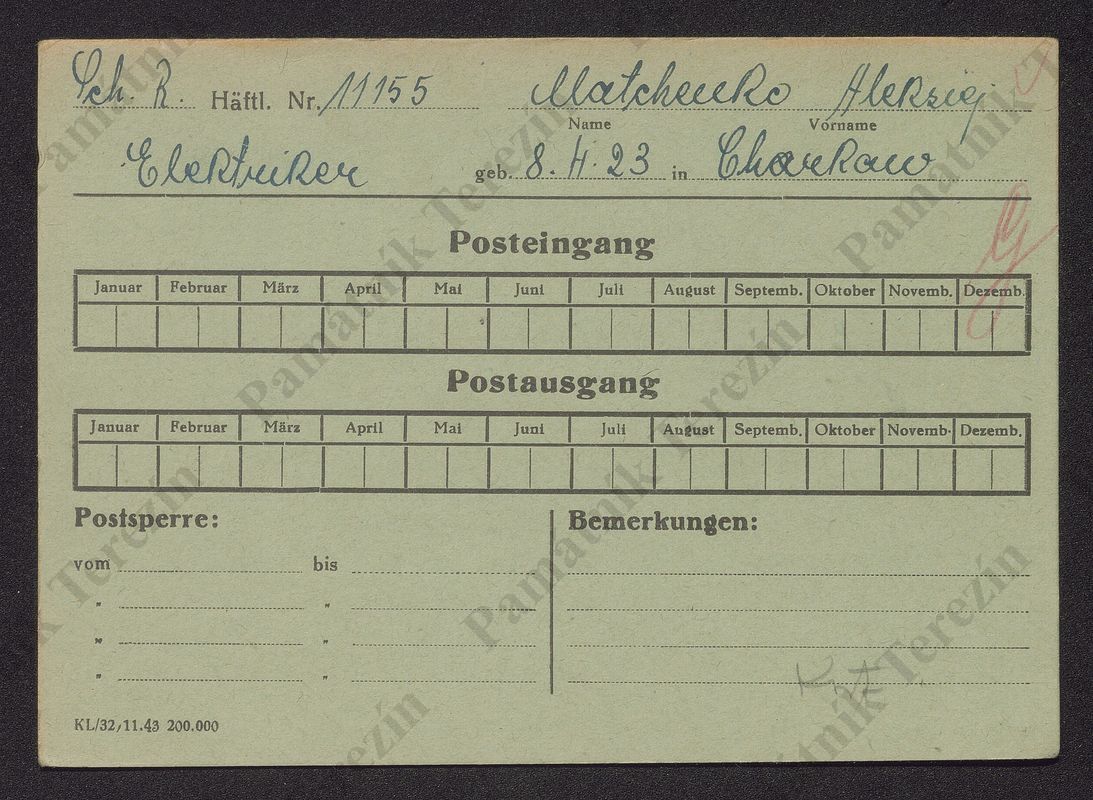 Sch. R. Häftl. Nr. 11155 Matchenko Aleksiej
Name Vorname
Elektriker geb. 8. 4. 23 in Charkow
Posteingang
Januar Februar März April Mai Juni Juli August Septemb. Oktober Novemb. Dezemb.
Postausgang
Januar Februar März April Mai Juni Juli August Septemb. Oktober Novemb. Dezemb.
Postsperre: Bemerkungen:
vom bis
„ „
„ „
„ „
KL/32, 11.43 200.000
Památník Terezín